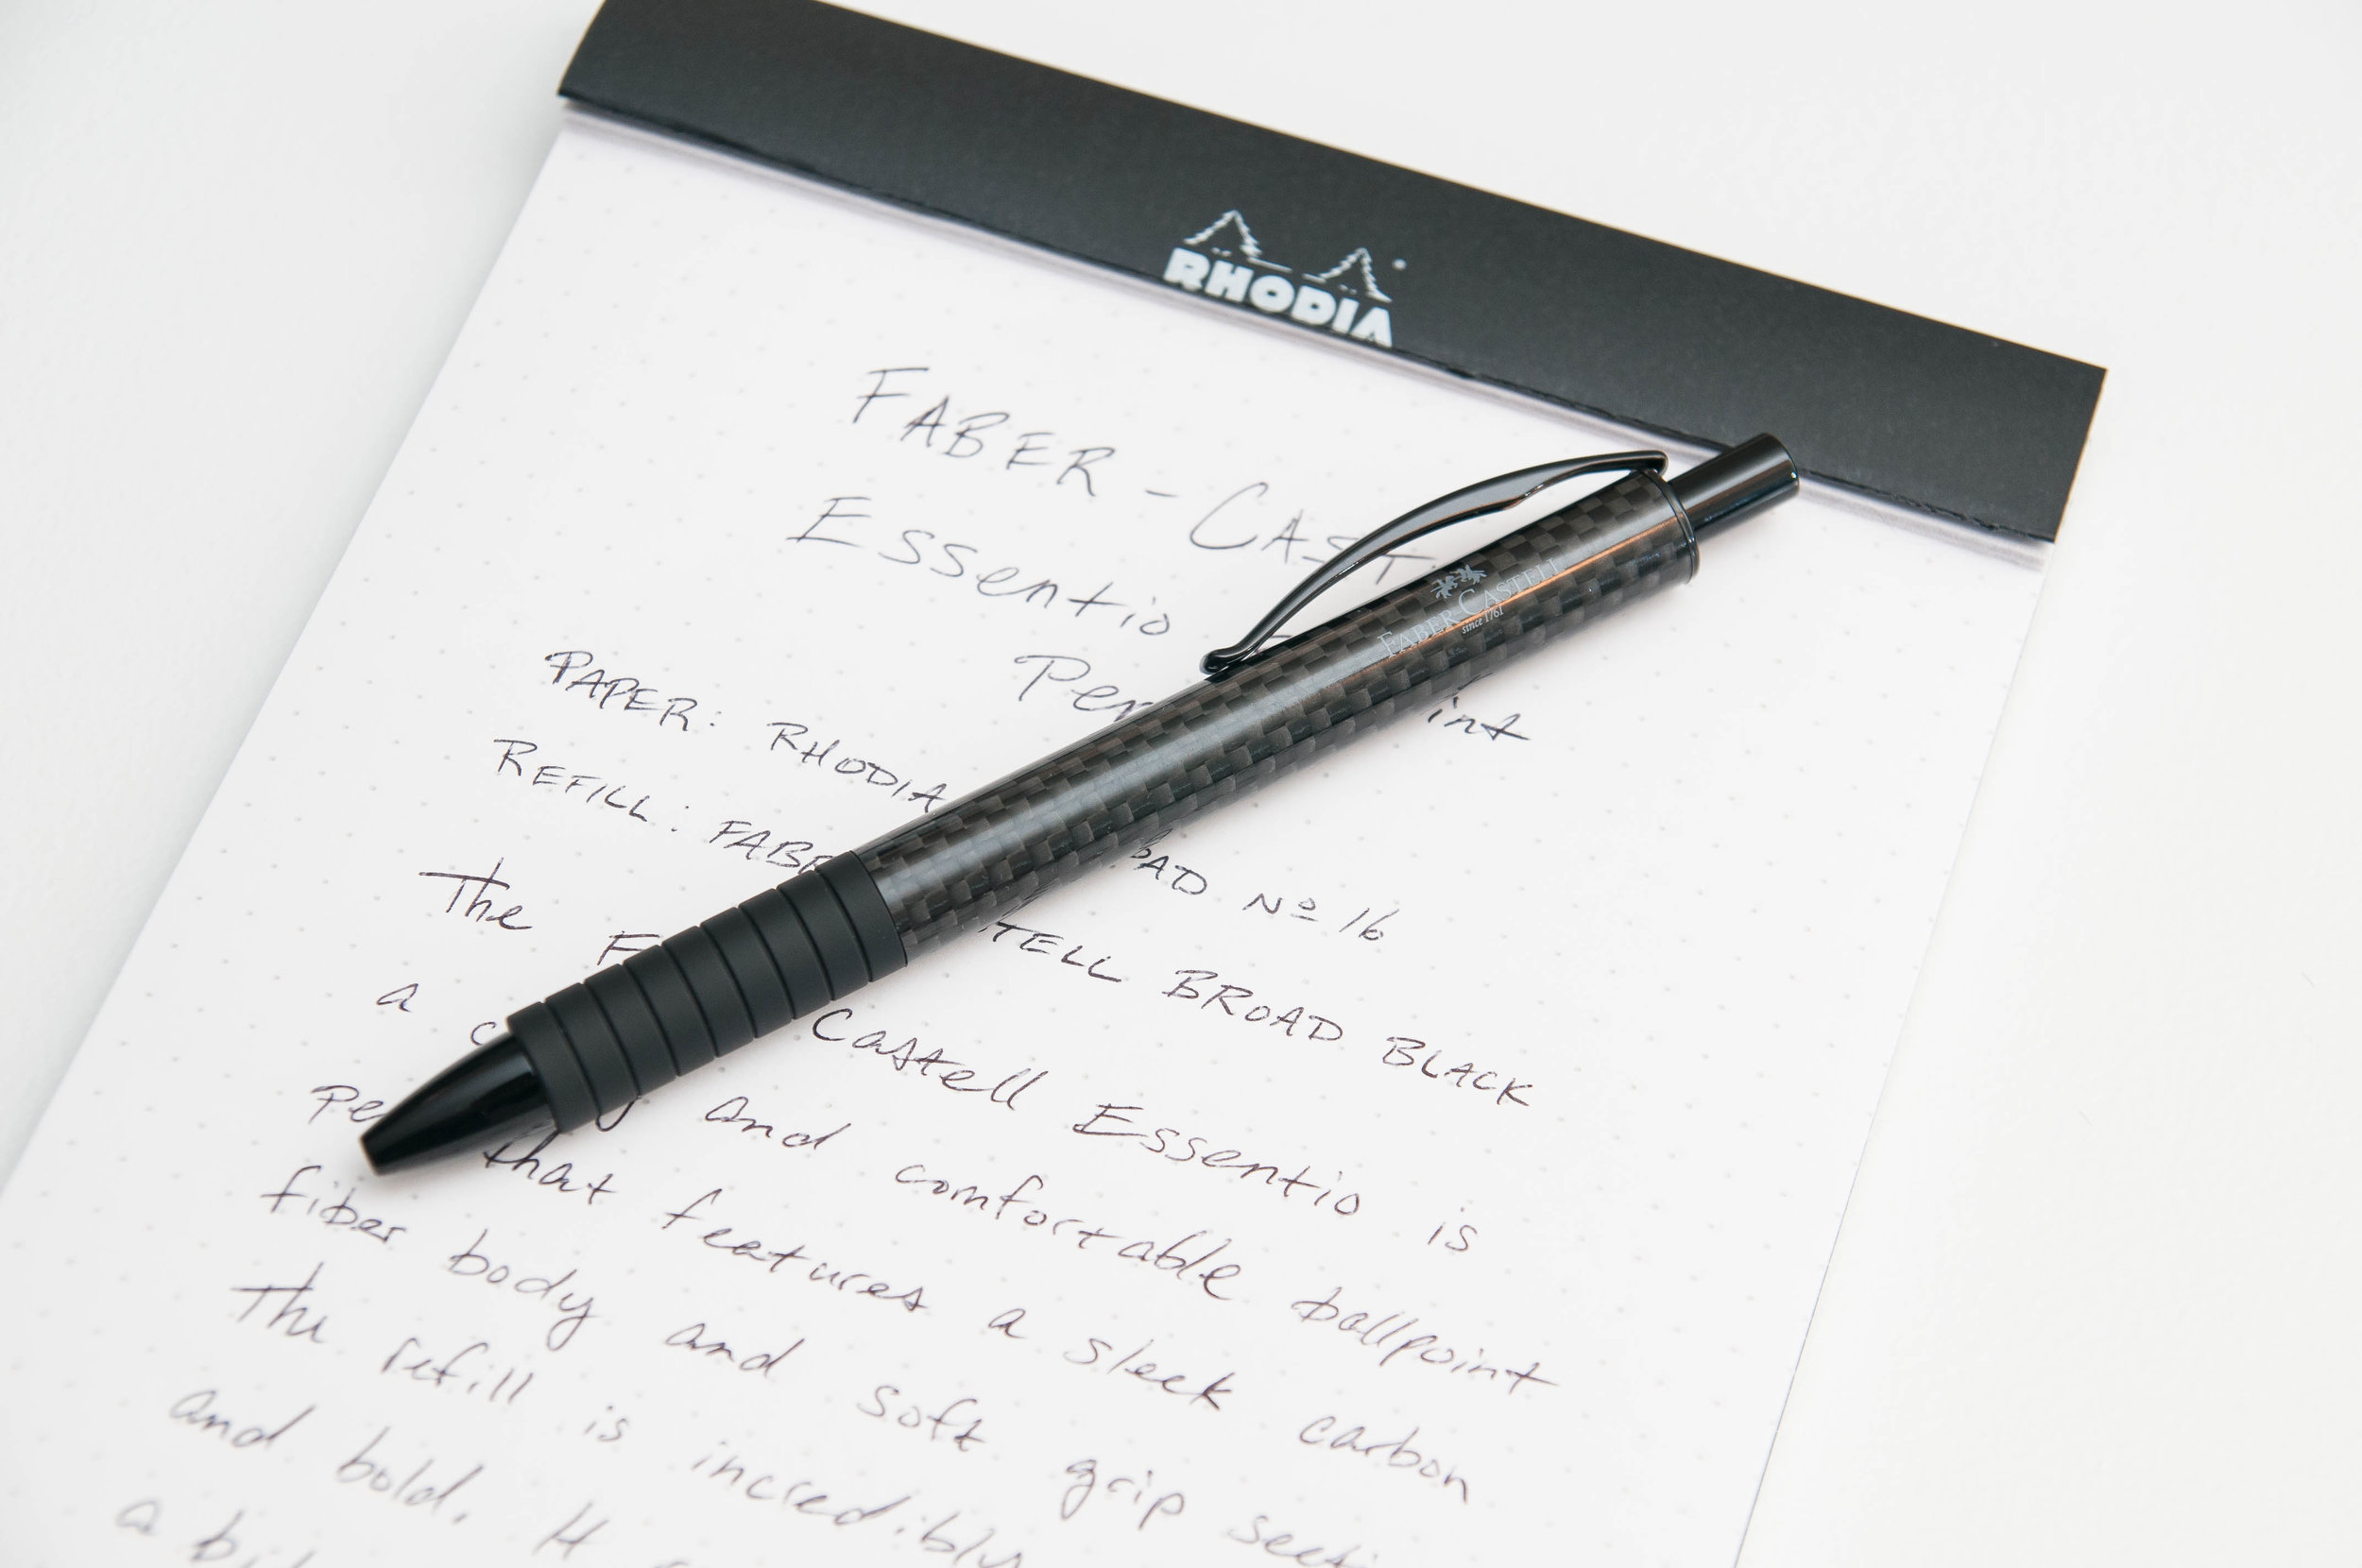 RHODIA
FABER-CAST
Essentio
Pen int
FABER-CASTELL
since 1761
PAPER: RHODIA PAD Nº 16
REFILL: FABE TELL BROAD BLACK
The F Castell Essentio is
a c and comfortable ballpoint
pe that features a sleek carbon
fiber body and soft grip secti
The refill is incredibly
and bold. H
a bi